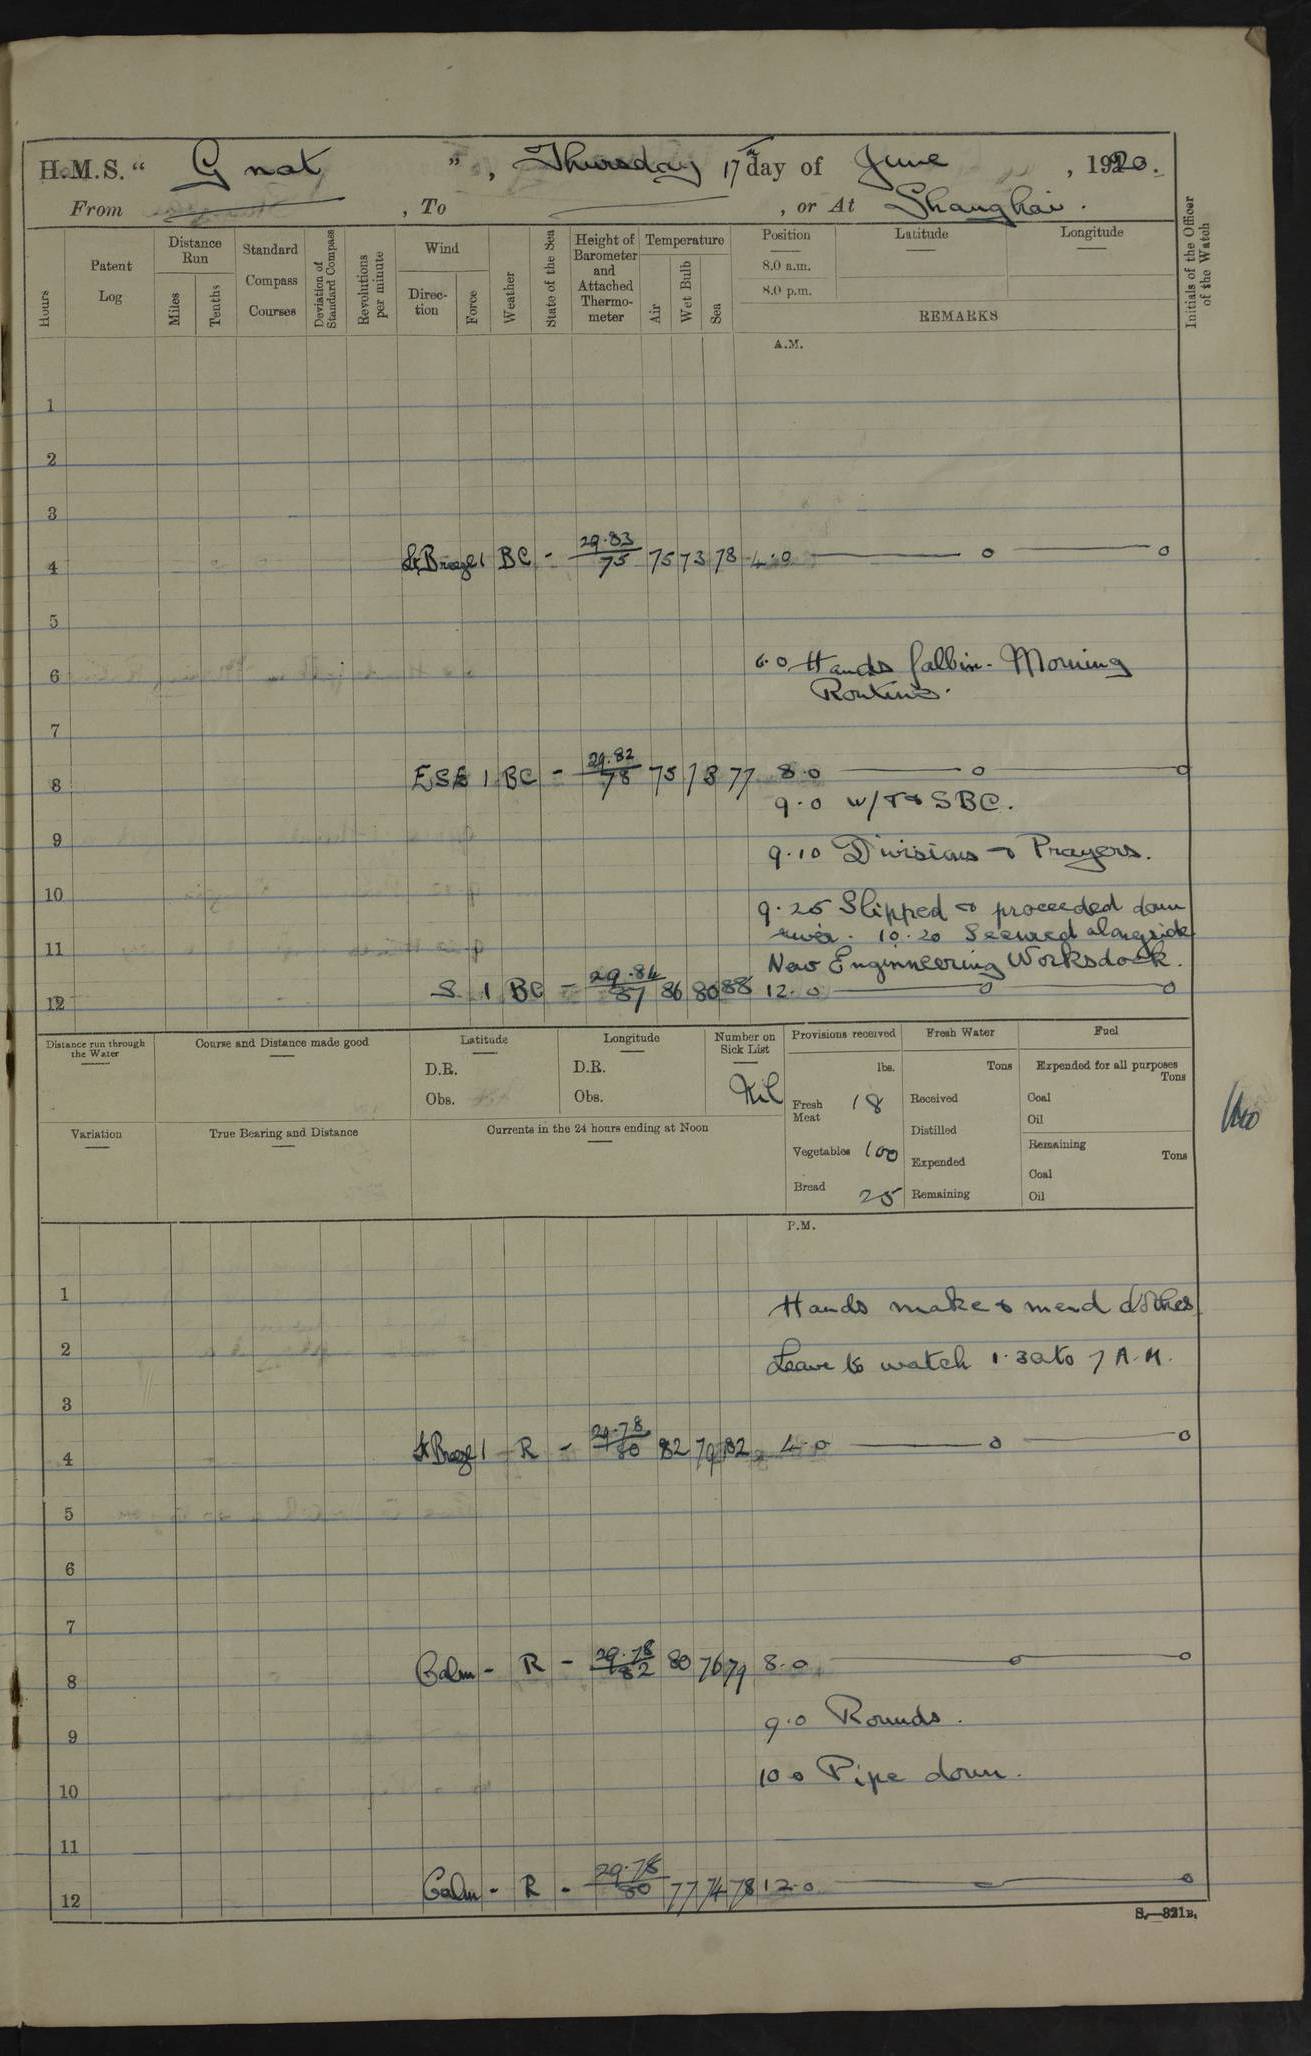 H.M.S. “ Gnat ”, Thursday 17th day of June, 1920.
From , To , or At Shanghai.
Hours
Patent Log
Distance Run
Miles
Tenths
Standard Compass Courses
Deviation of Standard Compass
Revolutions per minute
Wind
Direc-tion
Force
Weather
State of the Sea
Height of Barometer and Attached Thermo-meter
Temperature
Air
Wet Bulb
Sea
Position
8.0 a.m.
8.0 p.m.
Latitude
Longitude
REMARKS
Initials of the Officer of the Watch
A.M.
1
2
3
4 Lt Breeze 1 BC - 29.83/75 75 73 78 4.0 — o — o
5
6 6.0 Hands fall in. Morning
Routine.
7
8 ESE 1 BC - 29.82/78 75 73 77 8.0 — o — o
9.0 W/T & SBC.
9
9.10 Divisions & Prayers.
10
9.25 Slipped & proceeded down
river. 10.20 Secured alongside
11
New Enginneering Works dock.
12 S 1 BC - 29.84/87 86 80 88 12.0 — o — o
Distance run through the Water
Course and Distance made good
Latitude
D.R.
Obs.
Longitude
D.R.
Obs.
Number on Sick List
Nil
Provisions received
lbs.
Fresh Meat 18
Vegetables 100
Bread 25
Fresh Water
Tons
Received
Distilled
Expended
Remaining
Fuel
Expended for all purposes
Tons
Coal
Oil
Remaining
Tons
Coal
Oil
Variation
True Bearing and Distance
Currents in the 24 hours ending at Noon
P.M.
1
Hands make & mend clothes
2
Leave to watch 1.30 to 7 A.M.
3
4 Lt Breeze 1 R - 29.78/80 82 79 82 4.0 — o — o
5
6
7
8 Calm - R - 29.78/82 80 76 79 8.0 — o — o
9 9.0 Rounds.
10 10.0 Pipe down.
11
12 Calm - R - 29.78/80 77 74 78 12.0 — o
S.—321B.